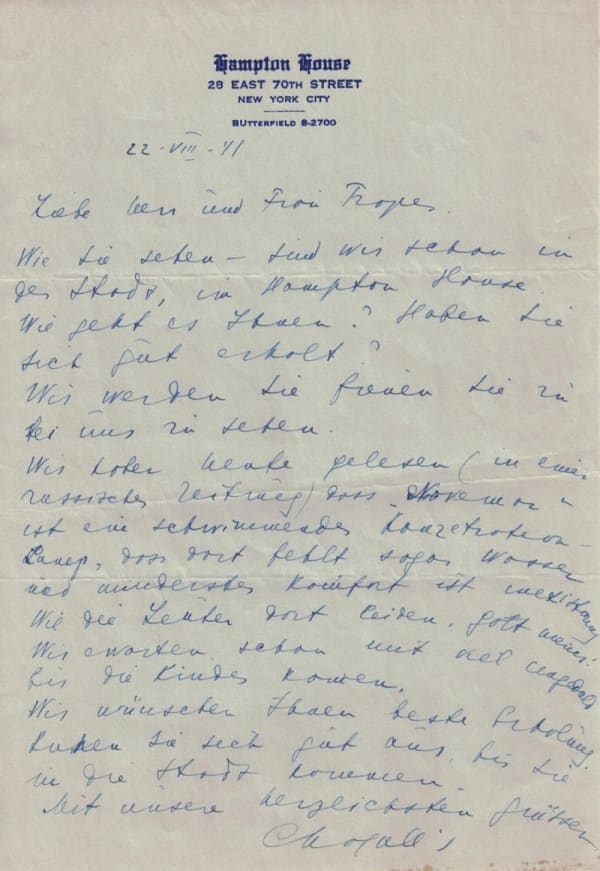 Hampton House
28 EAST 70TH STREET
NEW YORK CITY
BUTTERFIELD 8-2700
22-VIII-41
Liebe Herr und Frau
Wie Sie sehen – sind wir schon in
der Stadt, im Hampton House.
Wie geht es Ihnen? Haben Sie
sich gut erholt?
Wir werden Sie freuen Sie zu
bei uns zu sehen.
Wir haben heute gelesen (in einer
russischer Zeitung) dass
ist ein schwimmendes
dass dort fehlt sogar Wasser
und minderster Komfort ist
Wie die Leuten dort leiden, Gott meiner!
Wir warten schon mit viel Ungeduld
bis die Kinder komen.
Wir wünschen Ihnen beste Erholung.
Ruhen Sie sich gut aus, bis Sie
in die Stadt kommen.
Mit unsere herzlichsten Grüssen
Chagall's